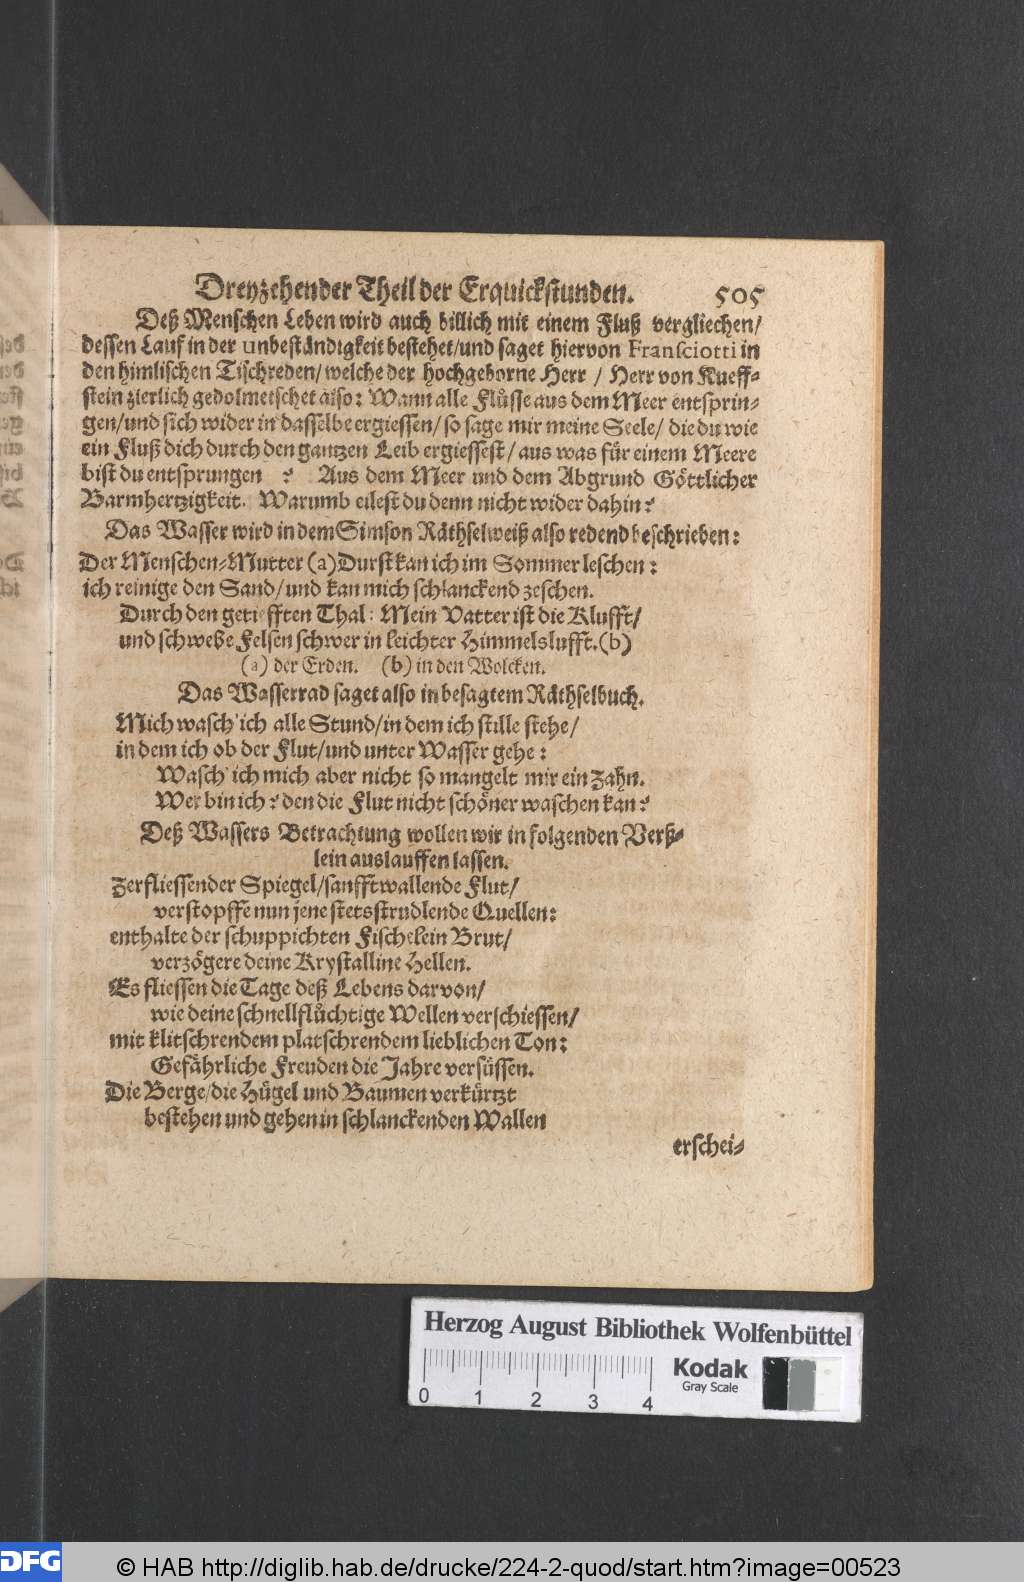 Dreyzehender Theil der Erquickstunden. 505
Deß Menschen Leben wird auch billich mit einem Fluß vergliechen/
dessen Lauf in der unbeständigkeit bestehet/und saget hiervon Fransciotti in
den himlischen Tischreden/welche der hochgeborne Herr / Herr von Kueff-
stein zierlich gedolmetschet also: Wann alle Flüsse aus dem Meer entsprin-
gen/und sich wider in dasselbe ergiessen/so sage mir meine Seele/ die du wie
ein Fluß dich durch den gantzen Leib ergiessest/aus was für einem Meere
bist du entsprungen ? Aus dem Meer und dem Abgrund Göttlicher
Barmhertzigkeit. Warumb eilest du denn nicht wider dahin?
Das Wasser wird in dem Simson Räthselweiß also redend beschrieben:
Der Menschen-Mutter (a) Durst kan ich im Sommer leschen:
ich reinige den Sand/und kan mich schlanckend zeschen.
Durch den getiefften Thal: Mein Vatter ist die Klufft/
und schwebe Felsen schwer in leichter Himmelslufft.(b)
(a) der Erden. (b) in den Wolcken.
Das Wasserrad saget also in besagtem Räthselbuch.
Mich wasch' ich alle Stund/in dem ich stille stehe/
in dem ich ob der Flut/und unter Wasser gehe:
Wasch' ich mich aber nicht so mangelt mir ein Zahn.
Wer bin ich? den die Flut nicht schöner waschen kan?
Deß Wassers Betrachtung wollen wir in folgenden Verß-
lein auslauffen lassen.
Zerfliessender Spiegel/sanfftwallende Flut/
verstopffe nun jene stetsstrudlende Quellen:
enthalte der schuppichten Fischelein Brut/
verzögere deine Krystalline Hellen.
Es fliessen die Tage deß Lebens darvon/
wie deine schnellflüchtige Wellen verschiessen/
mit klitschrendem platschrendem lieblichen Ton:
Gefährliche Freuden die Jahre versüssen.
Die Berge/die Hügel und Baumen verkürtzt
bestehen und gehen in schlanckenden Wallen
erschei-
Herzog August Bibliothek Wolfenbüttel
Kodak
Gray Scale
0 1 2 3 4
DFG © HAB http://diglib.hab.de/drucke/224-2-quod/start.htm?image=00523